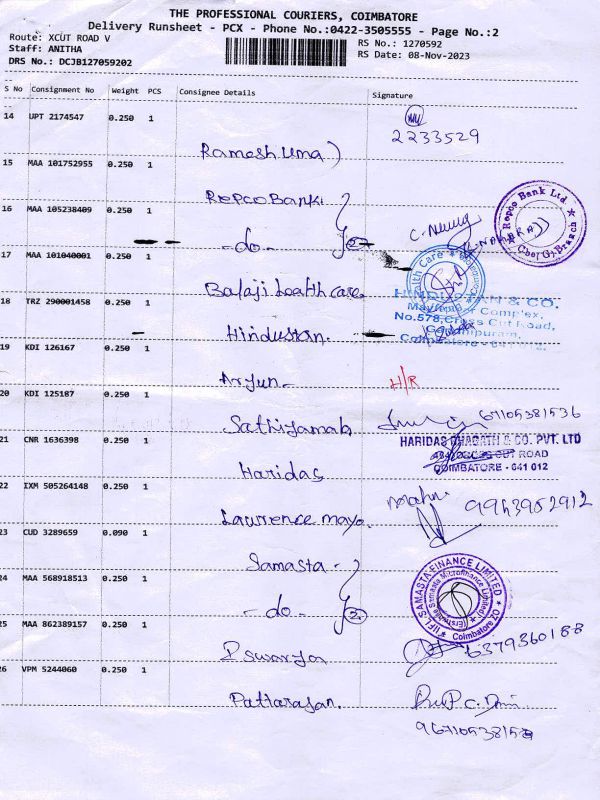 THE PROFESSIONAL COURIERS, COIMBATORE
Delivery Runsheet - PCX - Phone No.:0422-3505555 - Page No.:2
Route: XCUT ROAD V
Staff: ANITHA
DRS No.: DCJB127059202
RS No.: 1270592
RS Date: 08-Nov-2023
S No Consignment No Weight PCS Consignee Details Signature
14 UPT 2174547 0.250 1
2233529
Ramesh Uma
15 MAA 101752955 0.250 1
Repco Bank
16 MAA 105238409 0.250 1
-do-
Repco Bank Ltd
17 MAA 101040001 0.250 1
Balaji health care
Health Care
18 TRZ 290001458 0.250 1
HINDUSTAN & CO.
No.578, Cross Cut Road,
Hindustan.
19 KDI 126167 0.250 1
Arjun
H/R
20 KDI 125187 0.250 1
Sathiyamab
67105381536
21 CNR 1636398 0.250 1
HARIDAS BHAGATH & CO. PVT. LTD
CROSS CUT ROAD
COIMBATORE - 641 012
Haridas
22 IXM 505264148 0.250 1
9963952912
Lawrence mayo.
23 CUD 3289659 0.090 1
Samasta
24 MAA 568918513 0.250 1
IIFL SAMASTA FINANCE LIMITED
Coimbatore
-do-
25 MAA 862389157 0.250 1
6379360188
Iswarya
26 VPM 5244060 0.250 1
Pattarasan.